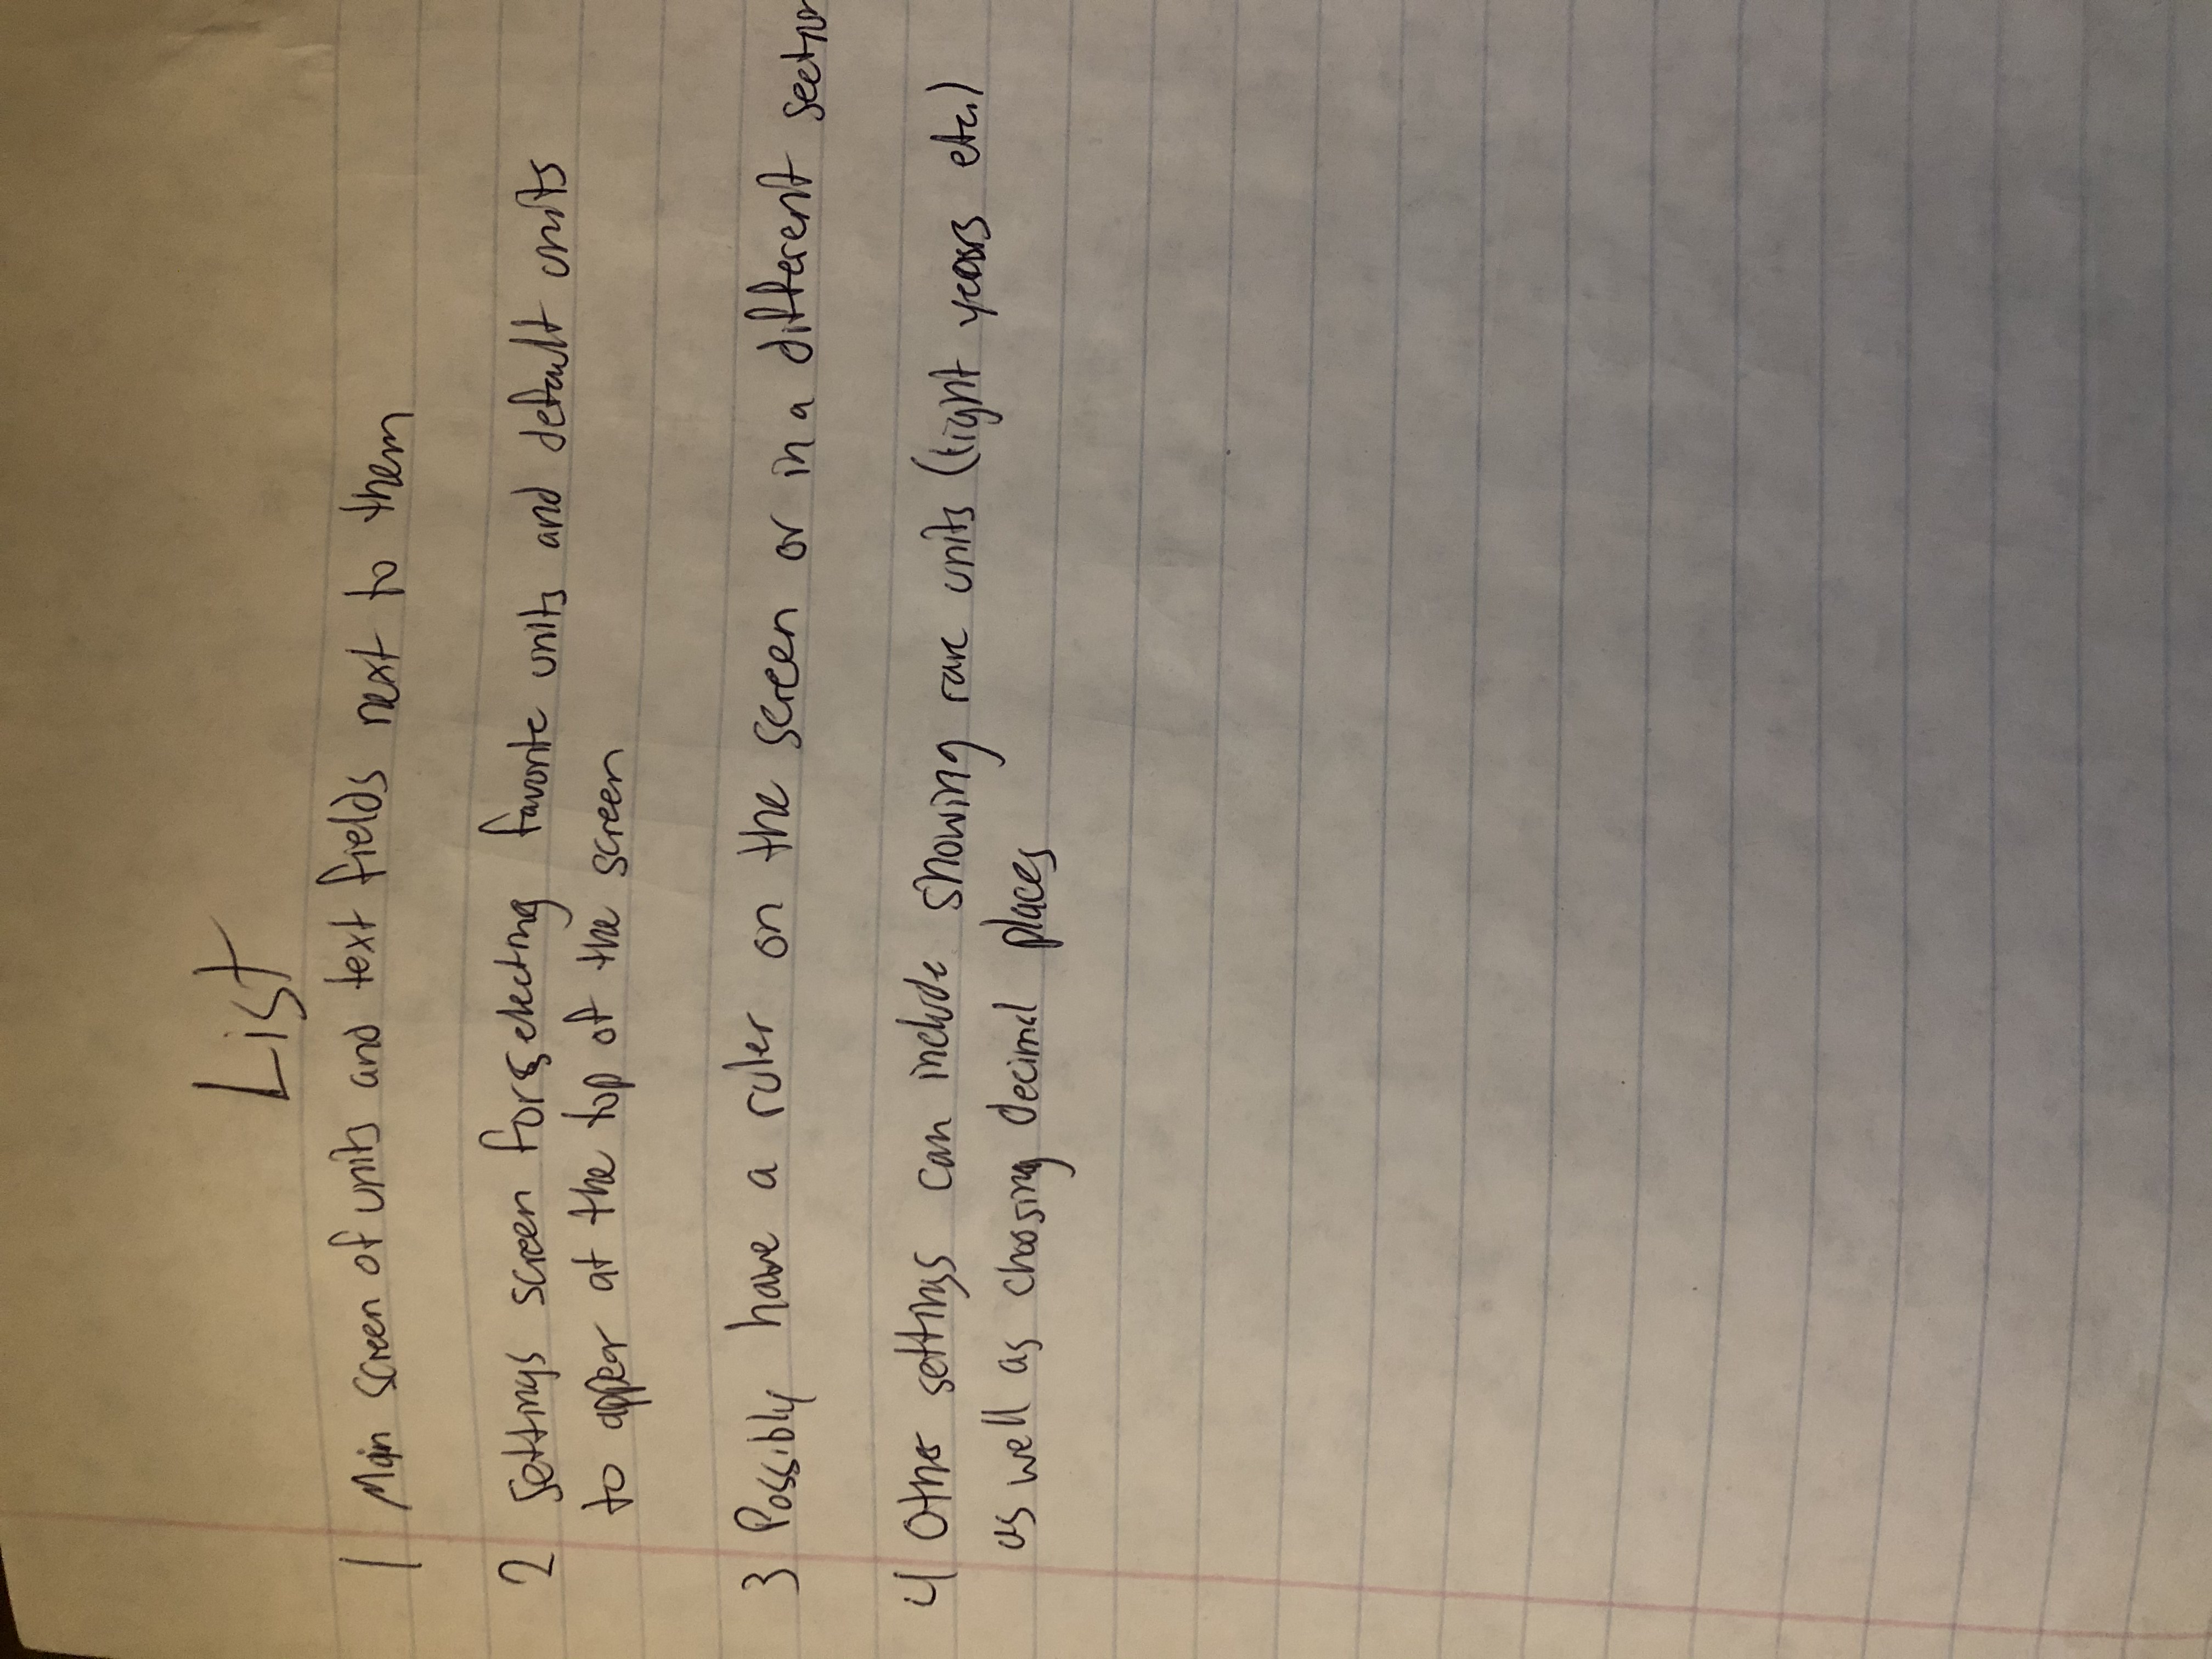 List
1 Main screen of units and text fields next to them
2 Settings screen for selecting favorite units and default units
to appear at the top of the screen
3 Possibly have a ruler on the screen or in a different section
4 Other settings can include showing rare units (light years etc.)
as well as choosing decimal places